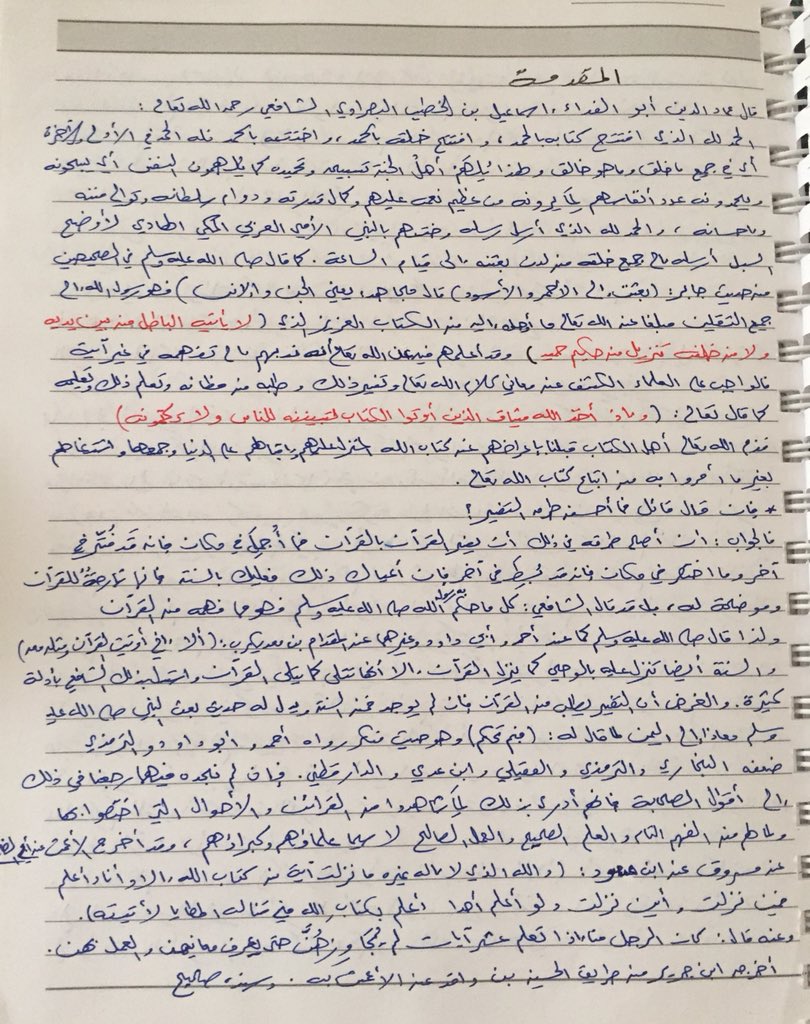 المقدمة
قال عماد الدين أبو الفداء، اسماعيل بن الخطيب البصراوي الشافعي رحمه الله تعالى :
الحمد لله الذي افتتح كتابه بالحمد، و افتتح خلقه بالحمد، و اختتمه بالحمد فله الحمد في الأولى والآخرة
أي في جميع ما خلق وما هو خالق و لهذا يُلهَمُ أهلُ الجنة تسبيحه و تحميده كما يلهمون النفس أي يسبحونه
ويحمدونه عدد أنفاسهم لما يرونه من عظيم نعمه عليهم وكمال قدرته و دوام سلطانه وتوالي مننه
وإحسانه ، والحمد لله الذي أرسل رسله وختمهم بالنبي الأمي العربي المكي الهادي لأوضح
السبل أرسله إلى جميع خلقه من لدن بعثته إلى قيام الساعة . كما قال صلى الله عليه وسلم في الصحيحين
من حديث جابر : (بعثت إلى الأحمر و الأسود) قال مجاهد : يعني الجن و الإنس) فهو رسول الله إلى
جميع الثقلين مبلغا عند الله تعالى ما أوحاه إليه من الكتاب العزيز الذي (لا يأتيه الباطل من بين يديه
ولا من خلفه تنزيل من حكيم حميد) وقد أعلمهم فيه عن الله تعالى أنه ندبهم إلى تفهمه في غير آية
فالواجب على العلماء الكشف عن معاني كلام الله تعالى وتفسير ذلك و طلبه من مظانه وتعلم ذلك وتعليمه
كما قال تعالى : (وإذ أخذ الله ميثاق الذين أوتوا الكتاب لتبيننه للناس ولا تكتمونه)
فذم الله تعالى أهل الكتاب قبلنا بإعراضهم عن كتاب الله المنزل عليهم وإقبالهم على الدنيا وجمعها واشتغالهم
بغير ما أمروا به من اتباع كتاب الله تعالى .
* فإن قال قائل فما أحسن طرق التفسير ؟
فالجواب : أن أصح طرقه في ذلك أن يفسر القرآن بالقرآن فما أُجمل في مكان فإنه قد فُسِّر في
آخر وما اختصر في مكان فإنه قد بُسط في آخر فإن أعياك ذلك فعليك بالسنة فإنها شارحةٌ للقرآن
وموضحة له ، بل قد قال الشافعي : كل ما حكم رسول الله صلى الله عليه وسلم فهو مما فهمه من القرآن
ولذا قال صلى الله عليه وسلم كما عند أحمد و أبي داود وغيرهما عن المقدام بن معديكرب : (ألا إني أوتيت القرآن ومثله معه)
والسنة أيضا تنزل عليه بالوحي كما ينزل القرآن . إلا أنها لا تتلى كما يتلى القرآن واستدل لذلك الشافعي بأدلة
كثيرة . والغرض أن التفسير يطلب من القرآن فإن لم يوجد فمن السنة ويدل له حديث بعث النبي صلى الله عليه
وسلم معاذا إلى اليمن لما قال له : (فبم تحكم) وهو حديث منكر رواه أحمد و أبو داود و الترمذي
ضعفه البخاري و الترمذي و العقيلي و ابن عدي و الدارقطني . فإن لم نجده فيهما رجعنا في ذلك
إلى أقوال الصحابة فإنهم أدرى بذلك لما شاهدوا من القرائن و الأحوال التي اختصوا بها
ولما لهم من الفهم التام و العلم الصحيح والعمل الصالح لا سيما علماؤهم وكبراؤهم ، وقد أخرج الأعمش عن أبي الضحى
عن مسروق عن ابن مسعود : (والله الذي لا إله غيره ما نزلت آية من كتاب الله إلا و أنا أعلم
فيمن نزلت و أين نزلت و لو أعلم أحدا أعلم بكتاب الله مني تناله المطايا لأتيته) .
وعنه قال : كان الرجل منا إذا تعلم عشر آيات لم يجاوزهنَّ حتى يعرف معانيهن والعمل بهن .
أخرجه ابن جرير من طريق الحسين بن واقد عن الأعمش به . وسنده صحيح